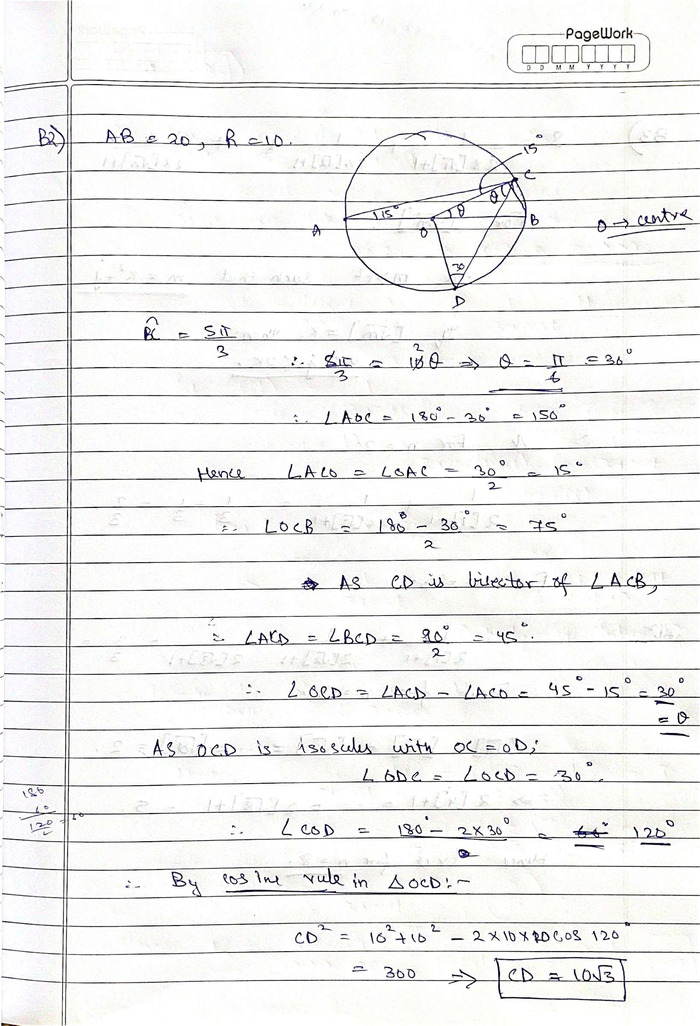 PageWork
D D M M Y Y Y Y
B2) AB = 20, R = 10.
15°
C
θ
A 15° O θ B
O → centre
30
D
BC = 5π/3
∴ 5π/3 = 10θ ⇒ θ = π/6 = 30°
2
∴ ∠AOC = 180° - 30° = 150°
Hence ∠ACO = ∠OAC = 30°/2 = 15°
∴ ∠OCB = 180° - 30°/2 = 75°
AS CD is bisector of ∠ACB,
∴ ∠ACD = ∠BCD = 90°/2 = 45°.
∴ ∠OCD = ∠ACD - ∠ACO = 45° - 15° = 30°
= θ
AS OCD is isosules with OC = OD;
∠ODC = ∠OCD = 30°.
180
60
120
∴ ∠COD = 180° - 2×30° = 120°
∴ By cosine rule in △OCD:-
CD² = 10² + 10² - 2×10×10 cos 120°
= 300 ⇒ CD = 10√3